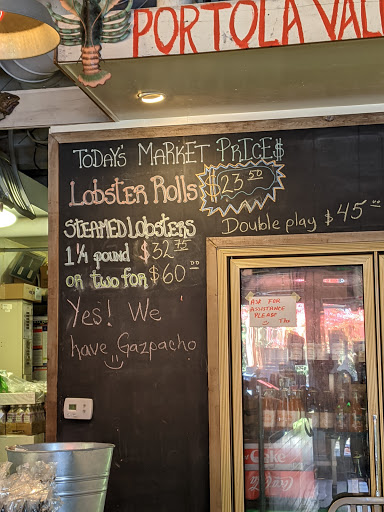 PORTOLA VAL
TODAY'S MARKET PRICE$
Lobster Rolls $23.50
STEAMED LOBSTERS
Double play $45.00
1 1/4 pound $32.75
or two for $60.00
Yes! We
have Gazpacho
ASK FOR
ASSISTANCE
PLEASE
Thx
Coke